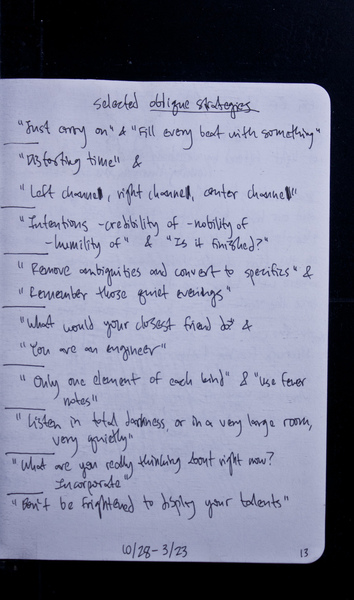 selected oblique strategies
"Just carry on" & "Fill every beat with something"
"Distorting time" &
"Left channel, right channel, center channel"
"Intentions -credibility of -nobility of
-humility of" & "Is it finished?"
"Remove ambiguities and convert to specifics" &
"Remember those quiet evenings"
"What would your closest friend do" &
"You are an engineer"
"Only one element of each kind" & "Use fewer
notes"
"Listen in total darkness, or in a very large room,
very quietly"
"What are you really thinking about right now?
Incorporate"
"Don't be frightened to display your talents"
10/28-3/23
13